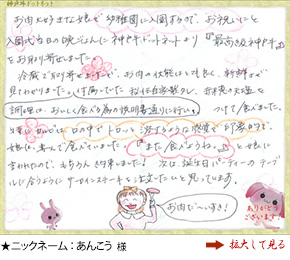 神戸牛ドットネット
お肉だいすきな娘が幼稚園に入園するので、お祝いにと
入園式当日の晩ごはんに神戸牛ドットネットより『最高級神戸牛』
をお取り寄せしました。
冷蔵で取り寄せましたが、お肉の状態はとても良く、新鮮さが
見てわかりました。付属でいた
調理は、おいしく食べる為の説明書通りに行い、つけて食べました。
口の中でトロッと溶けるような感覚で印象的で、
娘も喜んで食べていました。「また食べようね。」と娘に
言われたので、もちろん
次は、誕生日パーティーのテーブ
ルに合うようにサーロインステーキを注文したいと思っています。
お肉だ〜いすき!
ありがとう
ございます!
★ニックネーム：あんこう 様
拡大して見る